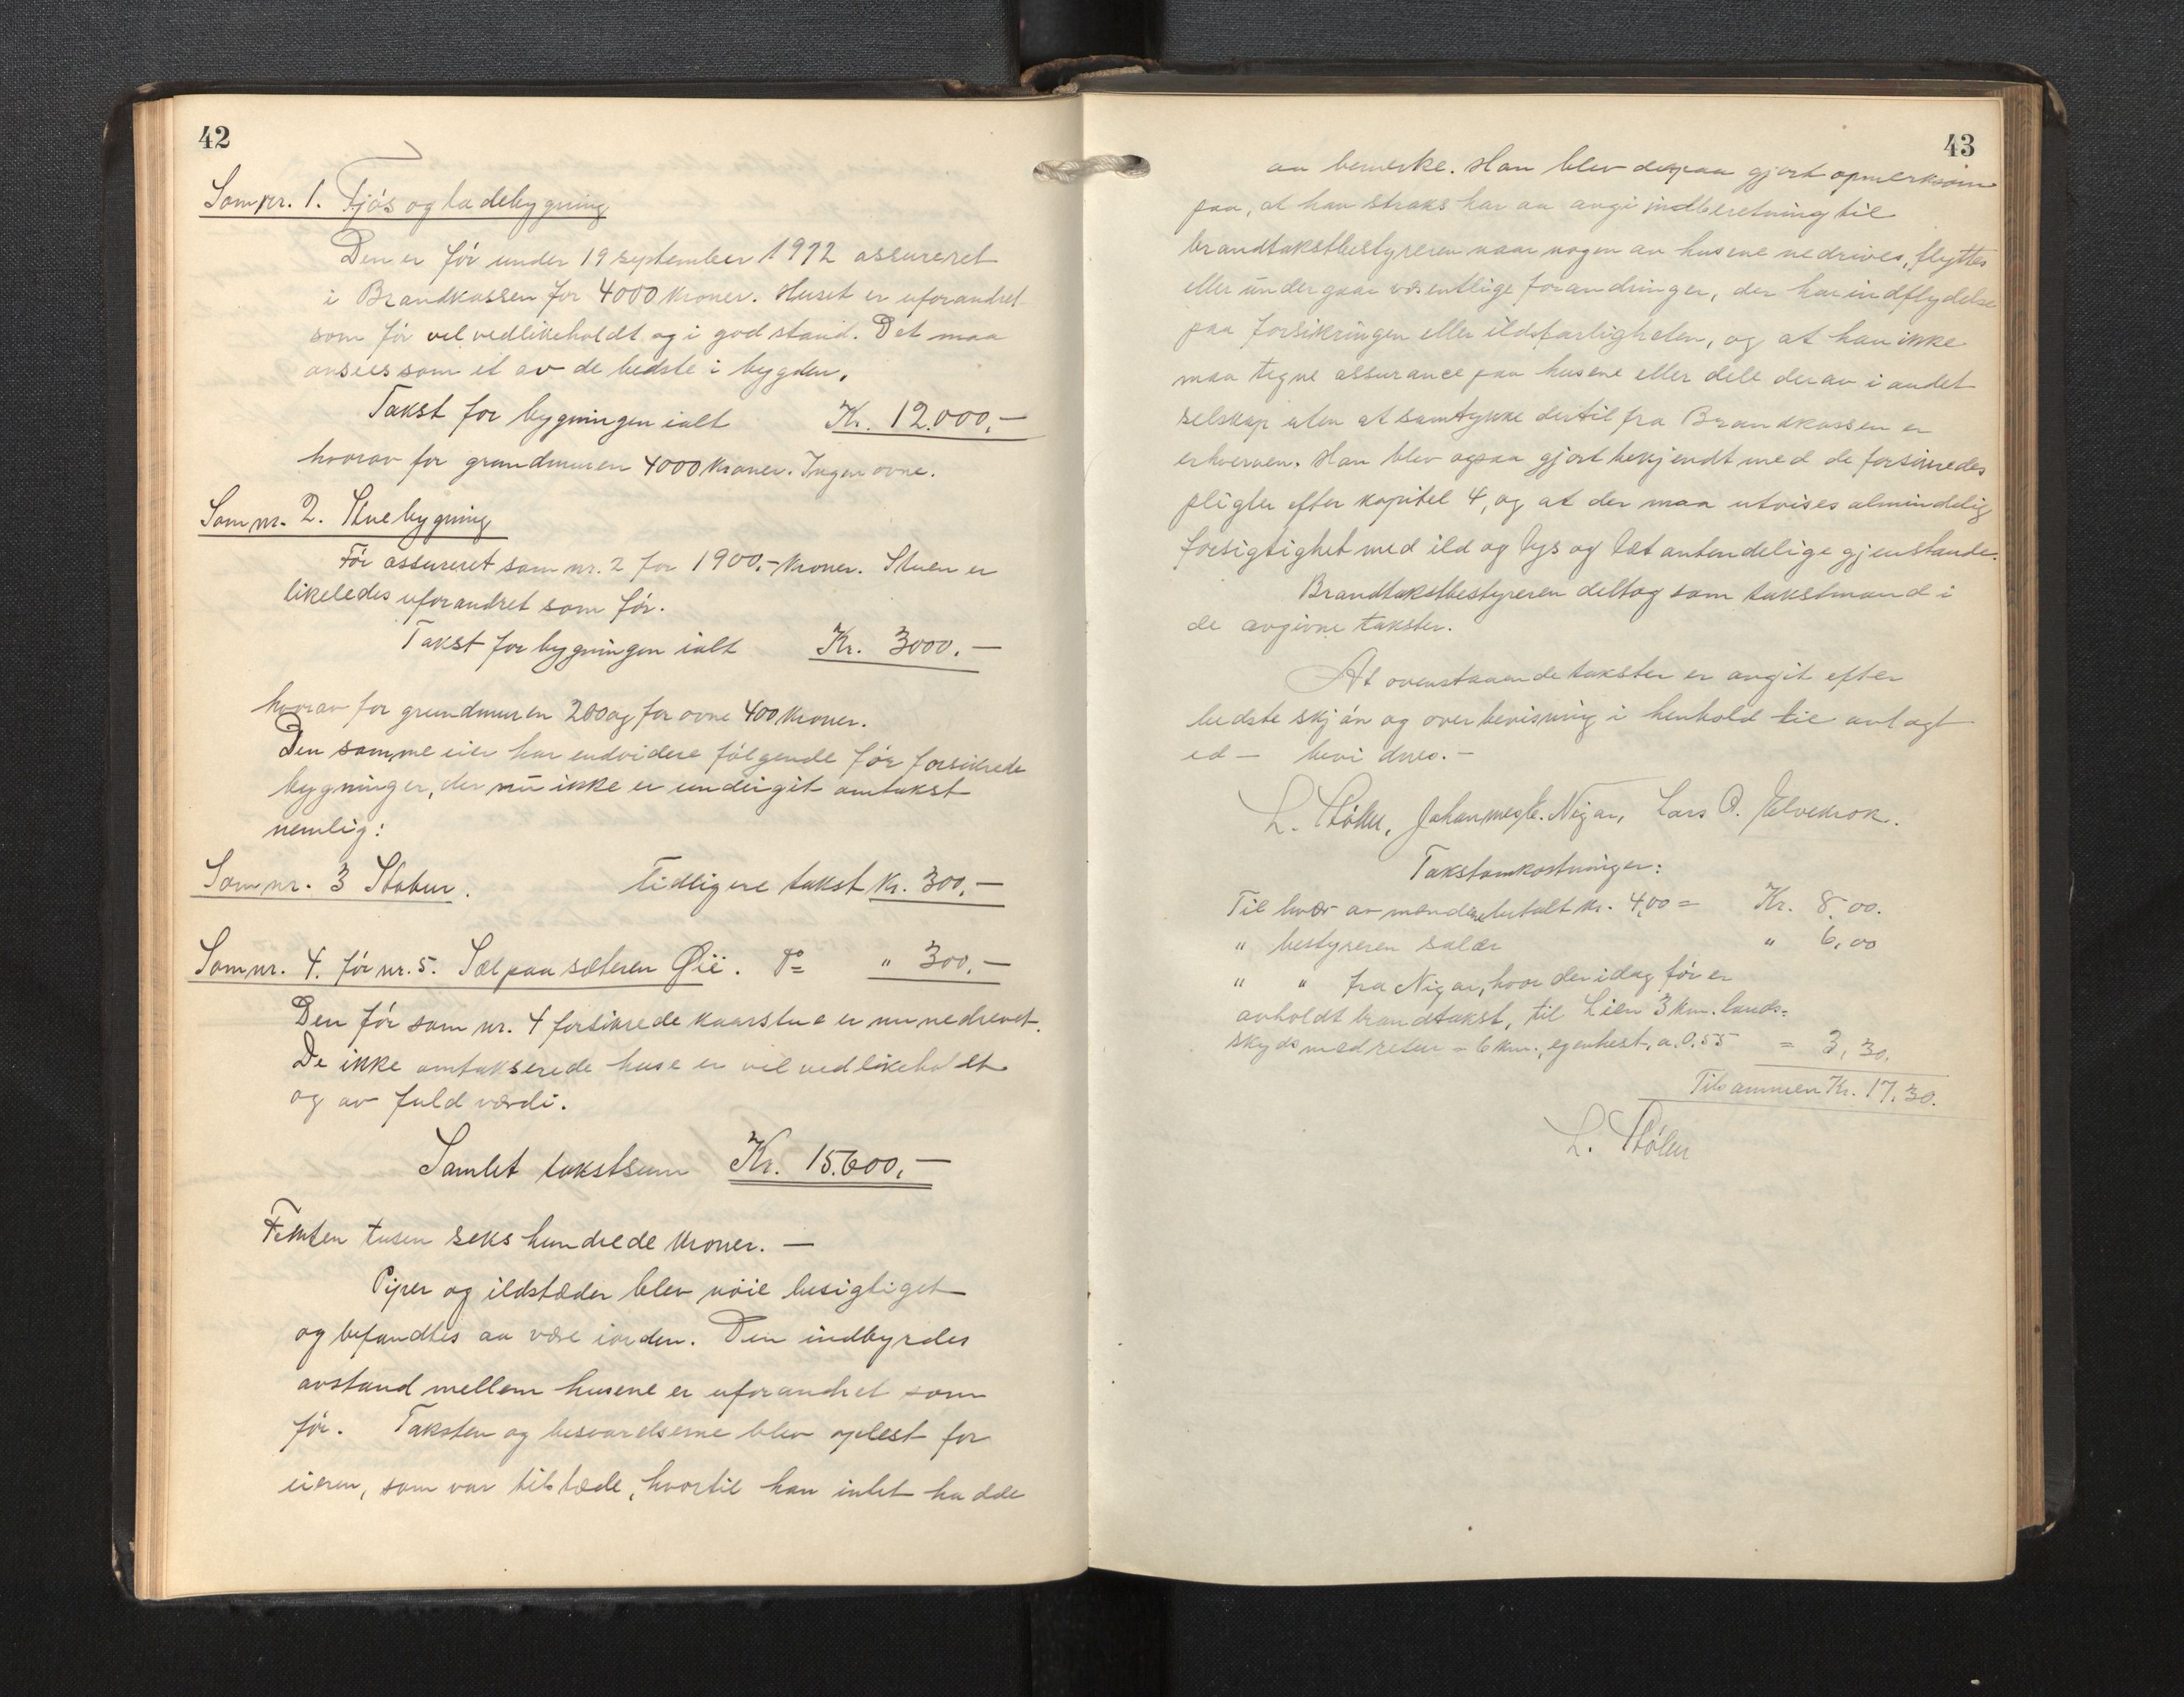 42
Som nr. 1. Fjøs og ladebygning
Den er før under 19 september 1912 assureret
i Brandkassen for 4000 kroner. Huset er uforandret
som før vel vedlikeholdt og i god stand. Det maa
ansees som et av de bedste i bygden.
Takst for bygningen ialt Kr. 12.000,-
hvorav for grundmuren 4000 kroner. Ingen ovne.
Som nr. 2. Stuebygning
Før assureret som nr. 2 for 1900,- kroner. Stuen er
likeledes uforandret som før.
Takst for bygningen ialt Kr. 3000,-
hvorav for grundmuren 200 og for ovne 400 kroner.
Den samme eier har endvidere følgende før forsikrede
bygninger, der nu ikke er undergit omtakst
nemlig:
Som nr. 3 Stabur. Tidligere takst Kr. 300,-
Som nr. 4. før nr. 5. Sæl paa sæteren Øie. do " 300,-
Den før som nr. 4 forsikrede kaarstue er nu nedrevet.
De ikke omtakserede huse er vel vedlikeholdt
og av fuld værdi.
Samlet takstsum Kr. 15.600,-
Femten tusen seks hundrede kroner. -
Piper og ildstæder blev nøie besigtiget
og befandtes aa være iorden. Den indbyrdes
avstand mellem husene er uforandret som
før. Taksten og besvarelserne blev oplest for
eieren, som var tilstæde, hvortil han intet hadde
43
aa bemerke. Han blev derpaa gjort opmerksom
paa, at han straks har aa angi indberetning til
brandtakstbestyreren naar nogen av husene nedrives, flyttes
eller undergaar væsentlige forandringer, der har indflydelse
paa forsikringen eller ildsfarligheten, og at han ikke
maa tegne assurance paa husene eller dele derav i andet
selskap uten at samtykke dertil fra Brandkassen er
erhvervet. Han blev ogsaa gjort bekjendt med de forsikredes
pligter efter kapitel 4, og at der maa utvises almindelig
forsigtighet med ild og lys og let antendelige gjenstande.
Brandtakstbestyreren deltog som takstmand i
de avgivne takster.
At ovenstaaende takster er avgit efter
bedste skjøn og overbevisning i henhold til avlagt
ed - bevidnes. -
L. Støllen, Johannes L. Nigar, Lars O.
Takstomkostninger:
Til hver av mændene betalt kr. 4,00 = Kr. 8,00.
" bestyreren salær " 6,00
" " fra Nigar, hvor der idag før er
avholdt brandtakst, til Lien 3 km. lands=
skyds med retur = 6 km., egen hest, a 0.55 = 3,30.
Tilsammen Kr. 17,30.
L. Støllen